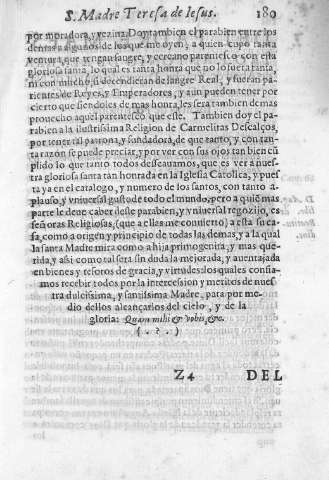 S. Madre Teresa de Iesus. 180
por moradora, y vezina. Doy tambien el parabien entre los
dentas a algunos de los que me oyen, a quien cupo tanta
ventura, que tengan sangre, y cercano parentesco con esta
gloriosa santa, lo qual es tanta honra que no lo fuera tanta,
ni con mucho, si decendieran de sangre Real, y fueran pa-
rientes de Reyes, y Emperadores, y aun pueden tener por
cierto que siendoles de mas honra, les sera tambien de mas
prouecho aquel parentesco que este. Tambien doy el pa-
rabien a la ilustrissima Religion de Carmelitas Descalços,
por tener tal patrona, y fundadora, de que tanto, y con tan-
ta razon se puede preciar, y por ver con sus ojos tan bien cū
plido lo que tanto todos desseauamos, que es ver a nues-
tra gloriosa santa tan honrada en la Iglesia Catolica, y pues
ta ya en el catalogo, y numero de los santos, con tanto a-
plauso, y vniuersal gusto de todo el mundo, pero a quiē mas
parte le deue caber deste parabien, y vniuersal regozijo, es
señoras Religiosas, (que a ellas me conuierto) a esta su ca-
sa, como a origen y principio de todas las demas, y a la qual
la santa Madre mira como a hija primogenita, y mas que-
rida, y assi como tal sera sin duda la mejorada, y auentajada
en bienes y tesoros de gracia, y virtudes: los quales confia-
mos recebir todos por la intercession y meritos de nues-
tra dulcissima, y santissima Madre, para por me-
dio dellos alcançarlos del cielo, y de la
gloria: Quam mihi & vobis, &c.
( . ? . )
Z4 DEL